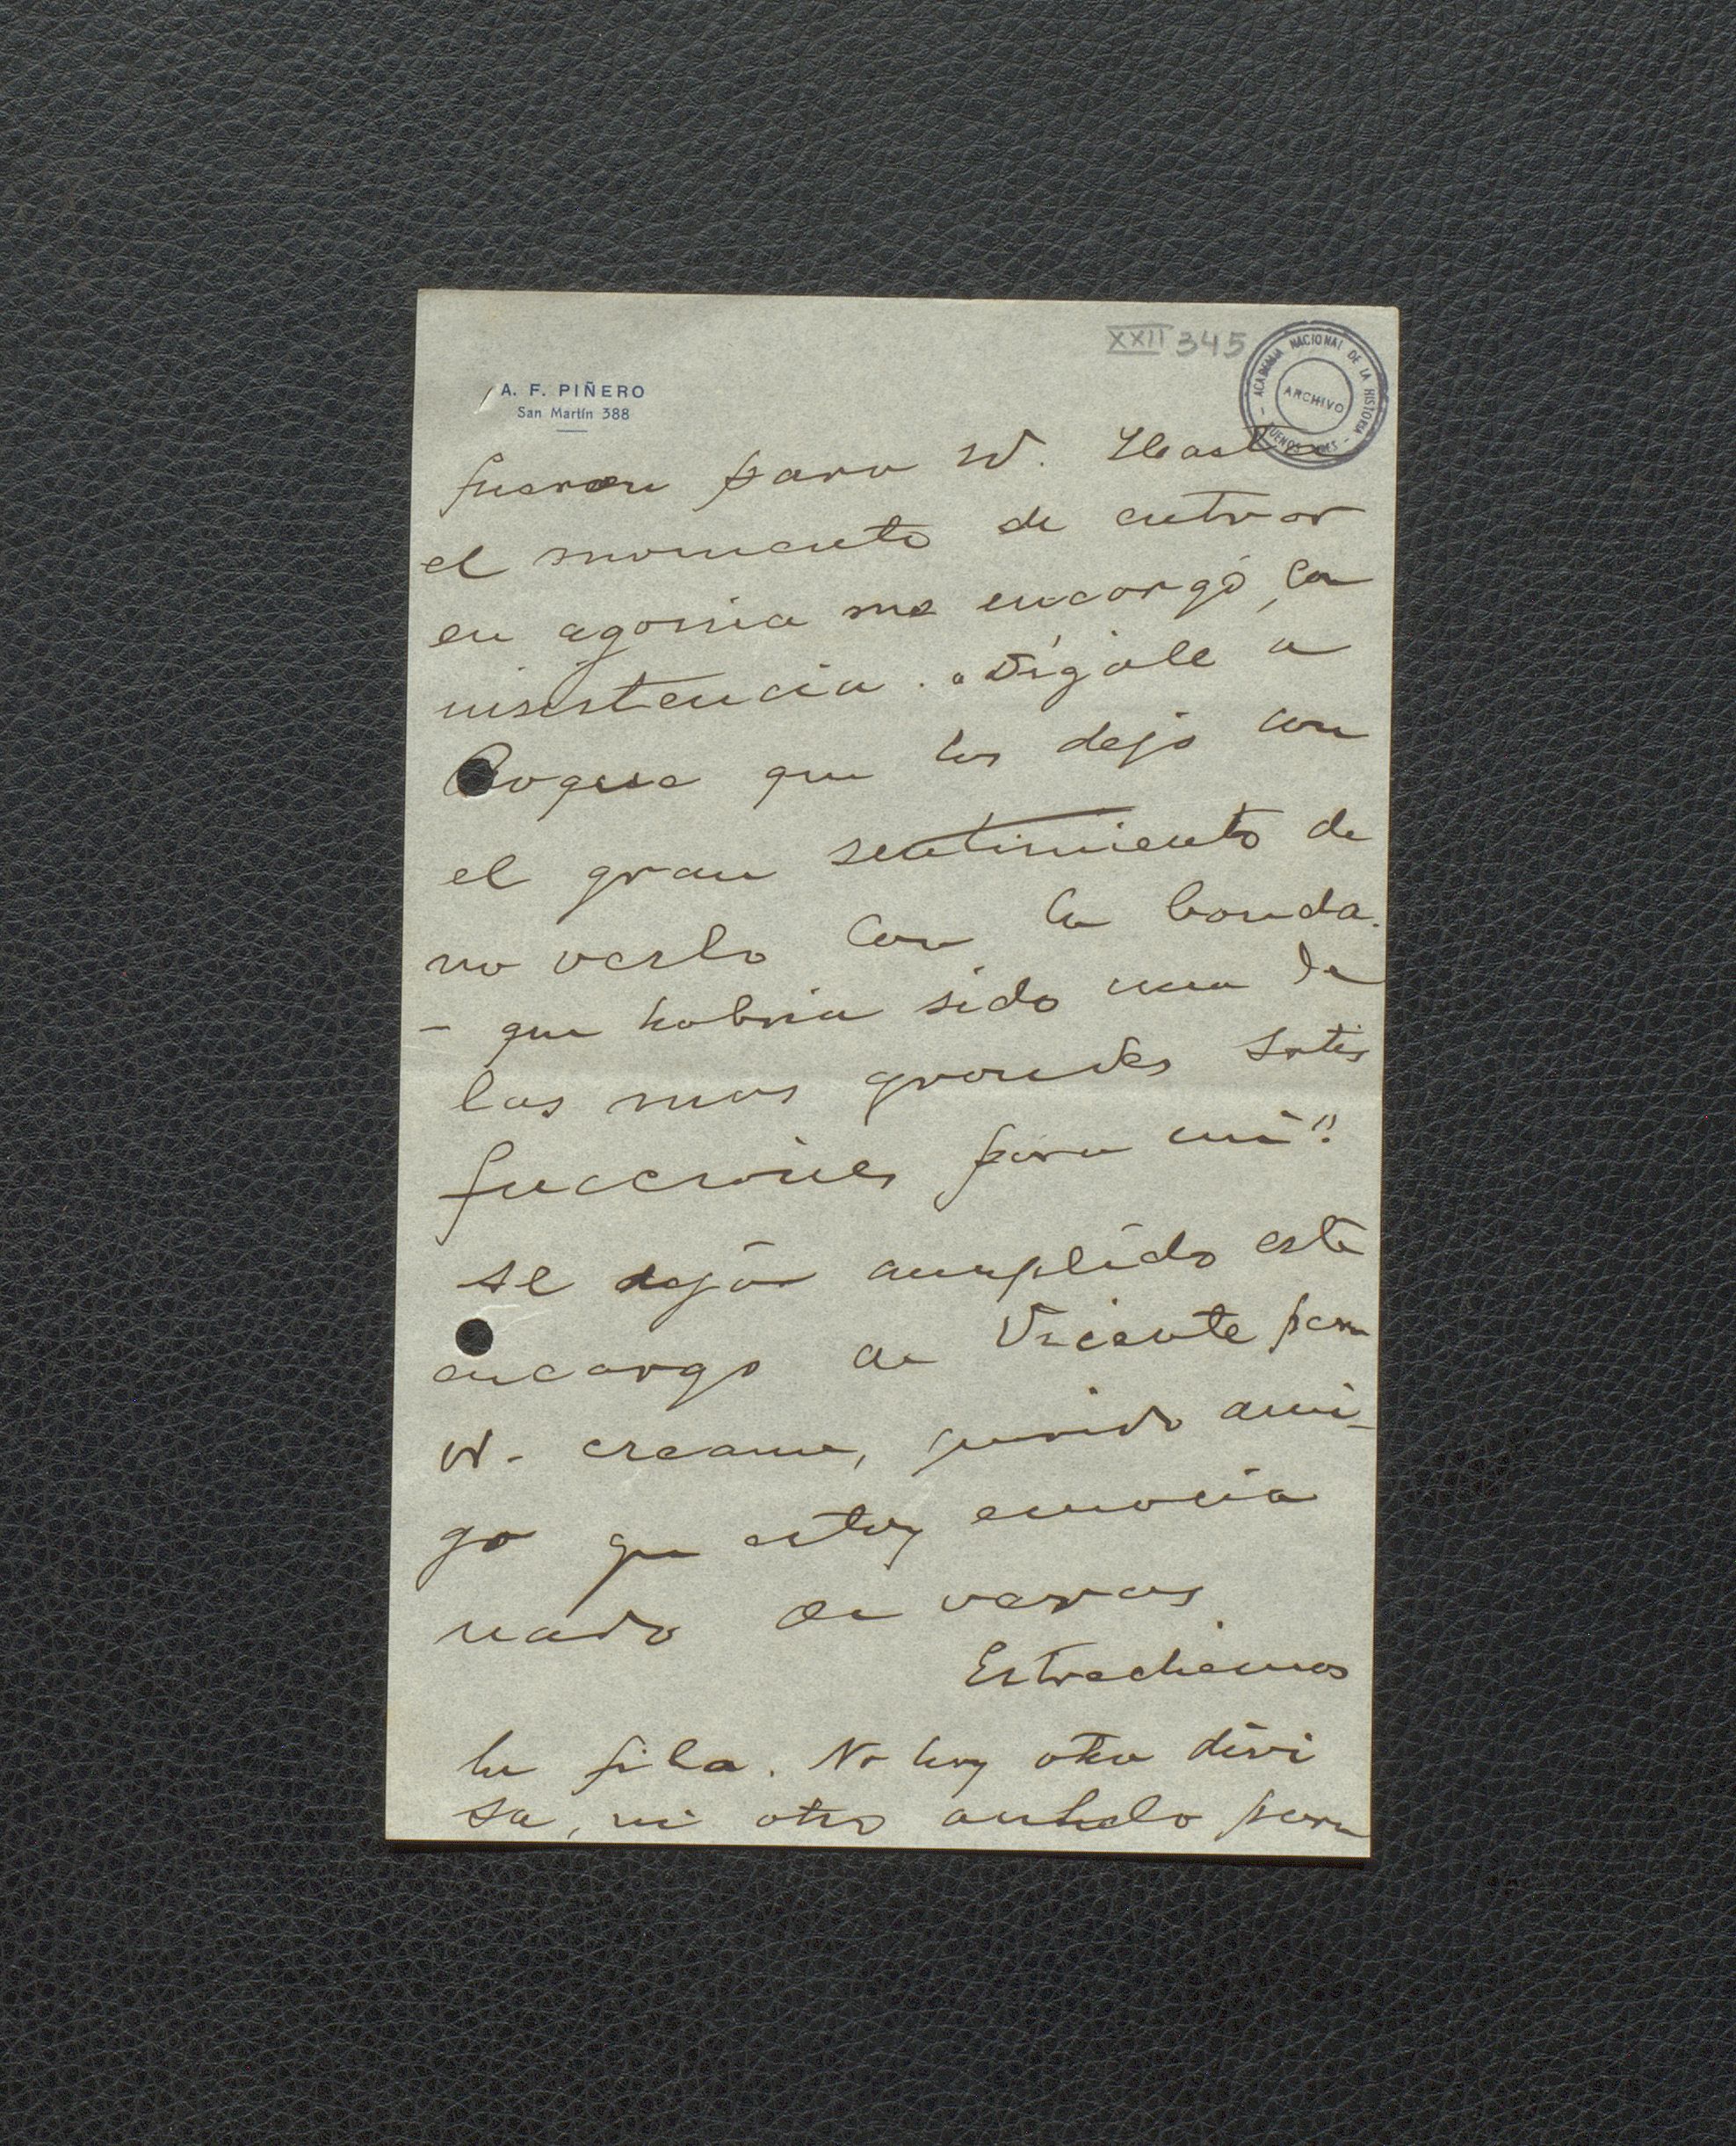 XXII 345
ACADEMIA NACIONAL DE LA HISTORIA
ARCHIVO
BUENOS AIRES
A. F. PIÑERO
San Martín 388
fueron para Vd. Hasta
el momento de entrar
en agonia me encargó, con
insistencia. "Dígale a
Roque que los dejo con
el gran sentimiento de
no verlo con la banda
- que habria sido una de
las mas grandes satis
facciones para mi".
Se dejo cumplido este
encargo de Vicente para
Vd. creame, querido ami-
go que estoy emocio
nado de veras
Estrechemos
la fila. No hay otra divi
sa, ni otro anhelo para